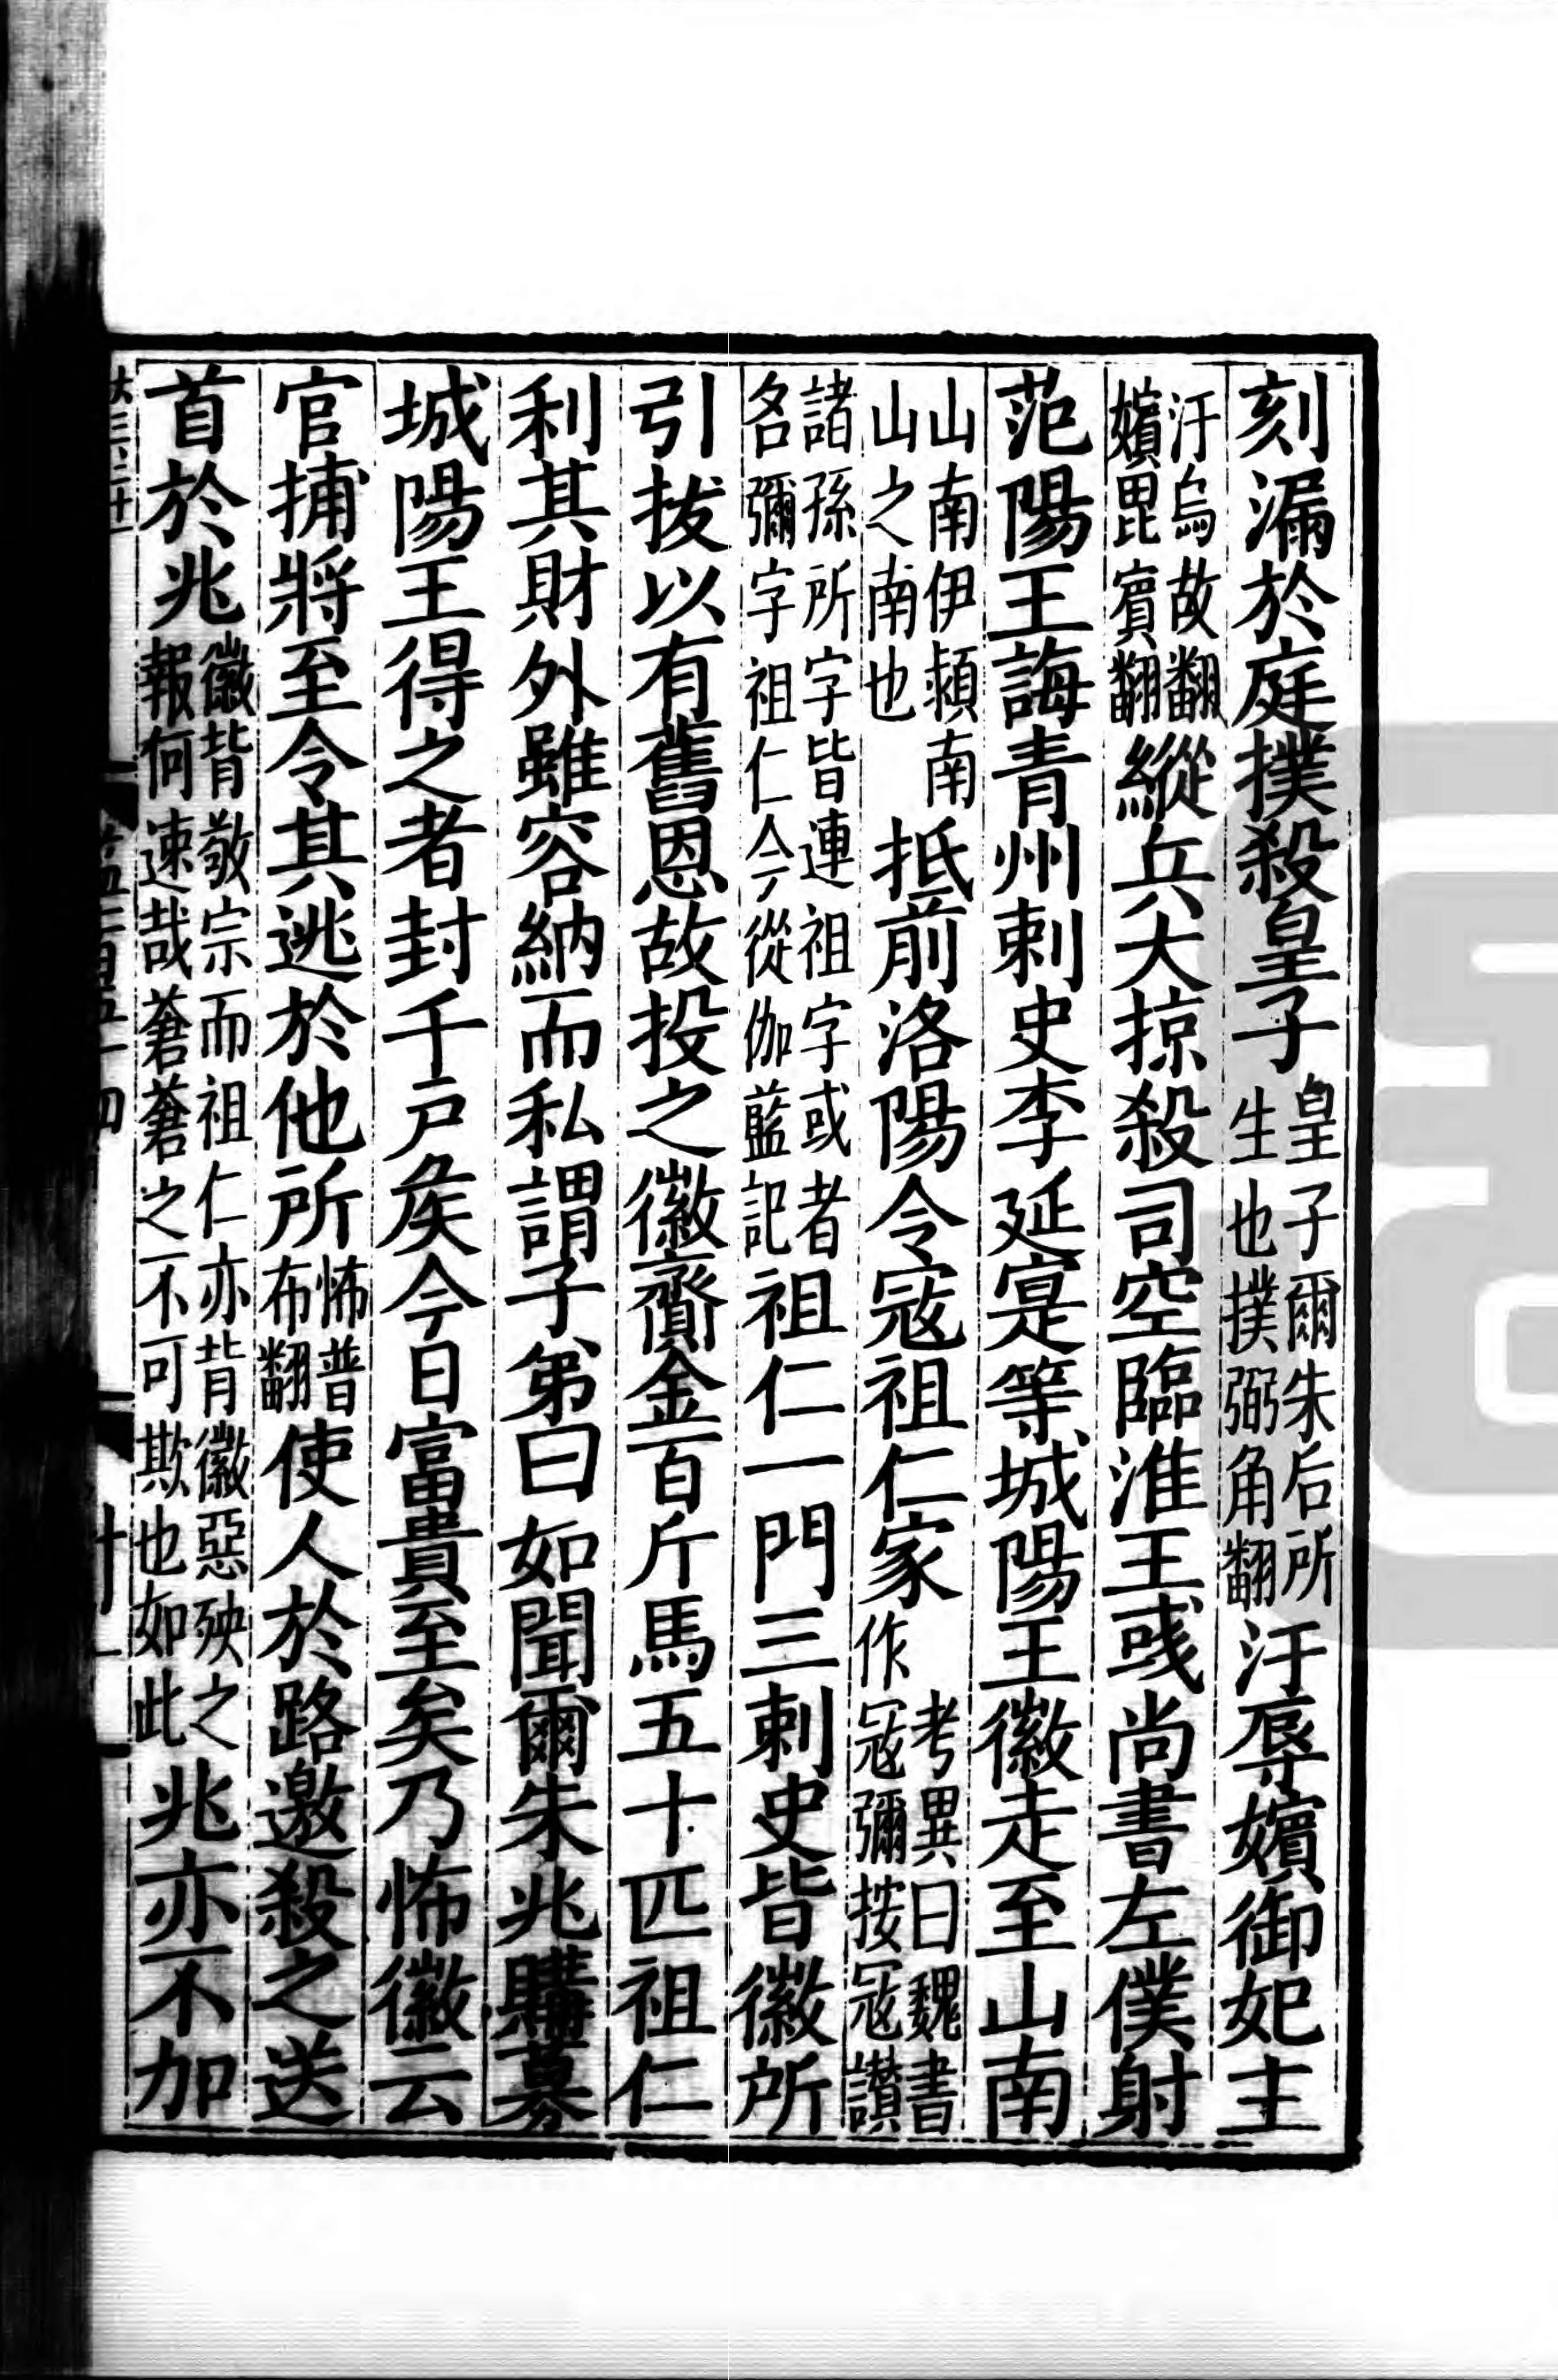 刻漏於庭撲殺皇子皇子爾朱后所生也撲弼角翻汙辱嬪御妃主
汙烏故翻嬪毘賓翻縱兵大掠殺司空臨淮王彧尚書左僕射
范陽王誨青州刺史李延寔等城陽王徽走至山南
山南伊潁南山之南也抵前洛陽令寇祖仁家考異曰魏書作寇彌按寇讃
諸孫所字皆連祖字或者名彌字祖仁今從伽藍記祖仁一門三刺史皆徽所
引拔以有舊恩故投之徽齎金百斤馬五十匹祖仁
利其財外雖容納而私謂子弟曰如聞爾朱兆購募
城陽王得之者封千戶矦今日富貴至矣乃怖徽云
官捕將至令其逃於他所怖普布翻使人於路邀殺之送
首於兆徽背敬宗而祖仁亦背徽惡殃之報何速哉蒼蒼之不可欺也如此兆亦不加